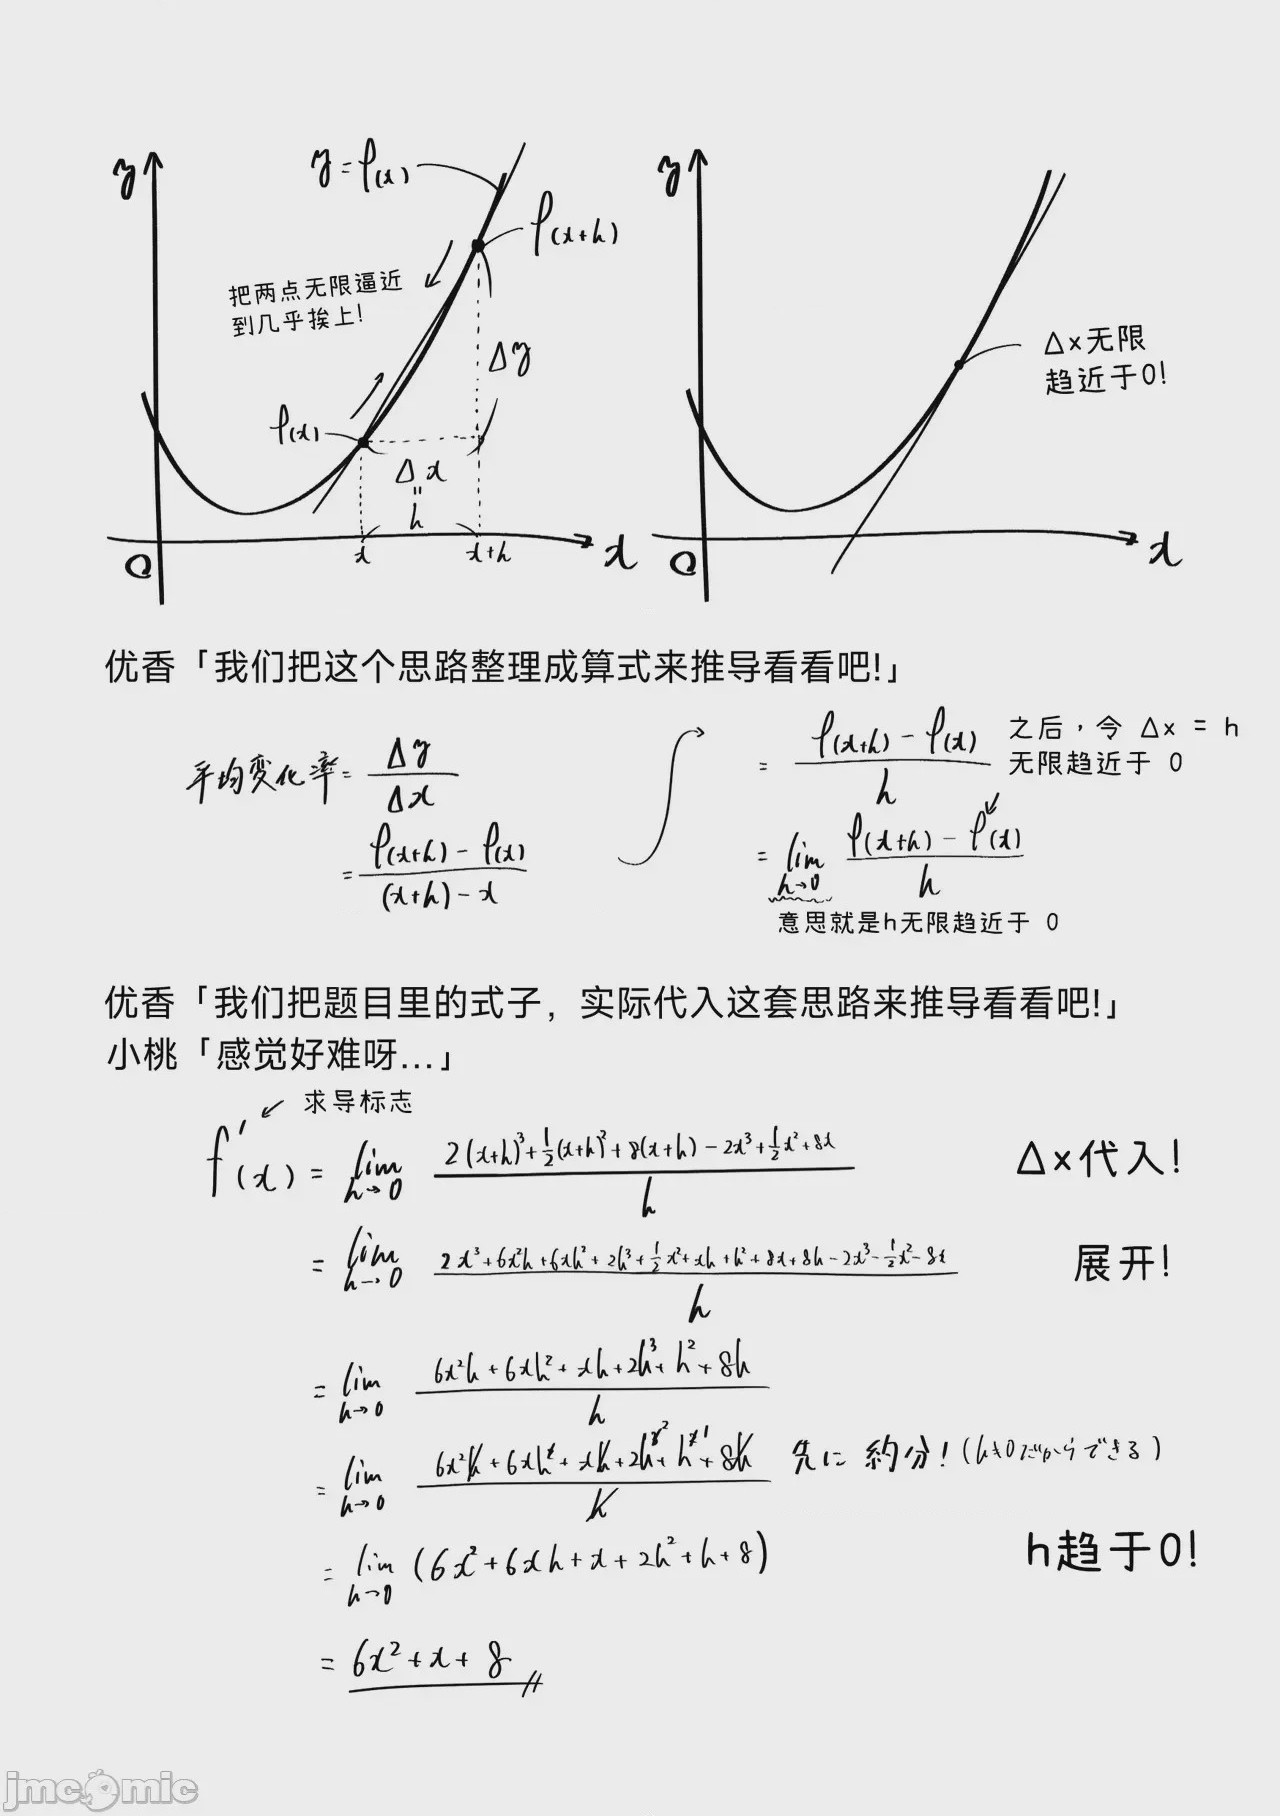 y
y = f(x)
f(x+h)
把两点无限逼近
到几乎挨上!
Δy
f(x)
Δx
=
h
O
x
x+h
x
y
Δx无限
趋近于0!
O
x
优香「我们把这个思路整理成算式来推导看看吧!」
平均变化率 = Δy / Δx
= (f(x+h) - f(x)) / ((x+h) - x)
= (f(x+h) - f(x)) / h
之后，令 Δx = h
无限趋近于 0
= lim h→0 (f(x+h) - f(x)) / h
意思就是h无限趋近于 0
优香「我们把题目里的式子，实际代入这套思路来推导看看吧!」
小桃「感觉好难呀...」
求导标志
f'(x) = lim h→0 (2(x+h)³+½(x+h)²+8(x+h)-2x³+½x²+8x) / h
Δx代入!
= lim h→0 (2x³+6x²h+6xh²+2h³+½x²+xh+h²+8x+8h-2x³-½x²-8x) / h
展开!
= lim h→0 (6x²h+6xh²+xh+2h³+h²+8h) / h
= lim h→0 (6x²h+6xh²+xh+2h³+h²+8h) / h 先に 約分! (h≠0だからできる)
= lim h→0 (6x²+6xh+x+2h²+h+8)
h趋于0!
= 6x²+x+8
jmcomic